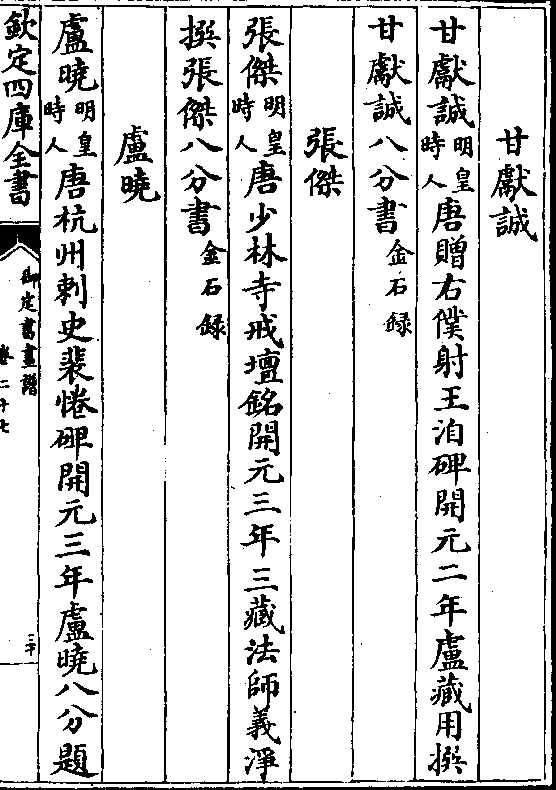 甘獻誠
甘獻誠明皇時人唐贈右僕射王洎碑開元二年盧藏用撰
甘獻誠八分書金石録
張傑
張傑明皇時人唐少林寺戒壇銘開元三年三藏法師義淨
撰張傑八分書金石録
盧曉
盧曉明皇時人唐杭州刺史裴惓碑開元三年盧曉八分題
欽定四庫全書
御定書畫譜
卷二十七
三十